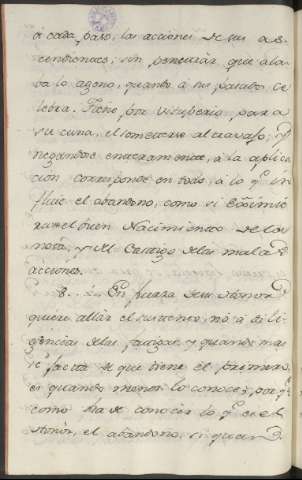 á cada paso, las acciones de sus as-
cendientes, sin penetrar, que alaba
lo ageno, quanto á sus pasados ce-
lebra. Tiene por vituperio, para
su cuna, el someterse al travajo, y
negandose enteramente, á la aplica-
cion corresponde en todo, á lo q.e in-
fluie el abandono, como si
el buen Nacimiento de la
nota, y del Castigo de las malas
acciones.
8. En fuerza de su Honor,
quiere allar el sustento, no á dili-
gencias de las fatigas, y quando mas
se jacta de que tiene el primero,
es quando menos lo conoce; por q.e
como ha de conocer lo q.e es el
Honor, el abandono, si